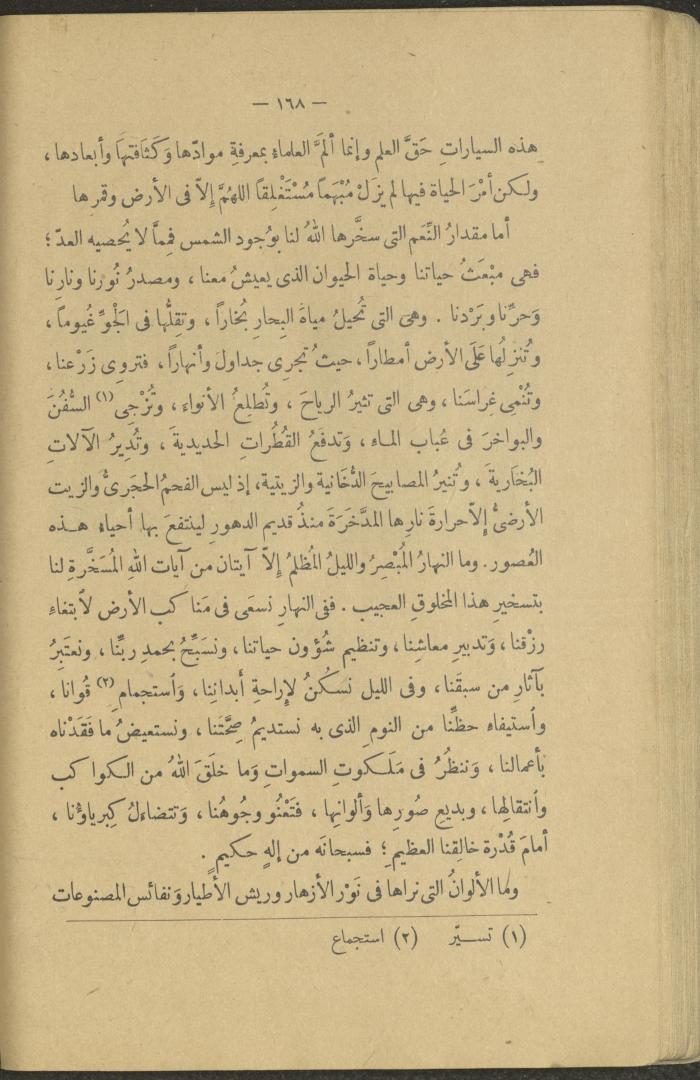 — ١٦٨ —
هذه السيارات حَقَّ العلم وإنما ألَمَّ العلماءُ بمعرفةِ موادّها وَكَثَافتِهَا وأبعادها ،
ولكن أمْرَ الحياة فيها لم يزَلْ مُبْهَماً مُسْتَغْلِقاً اللهُمَّ إلاّ فى الأرض وقمرها
أما مقدارُ النِّعَم التى سخَّرها اللهُ لنا بوُجود الشمس فِمماَّ لا يُحصيه العدّ ؛
فهى مبْعَثُ حياتنا وحياة الحيوان الذى يعيشُ معنا ، ومصدرُ نُورنا ونارِنا
وَحرِّنا وبَرْدنا . وهى التى تُحيلُ مياهَ البِحارِ بُخاراً ، وتقِلُّها فى الجَوِّ غُيوماً ،
وتُنزِلُها عَلَى الأرض أمطاراً ، حيثُ تجرى جداولَ وأنهاراً ، فتروِى زَرْعنا ،
وتُنْمِى غراسَنا ، وهى التى تثيرُ الرياحَ ، وتُطلِعُ الأنواء ، وتُزْجِى (١) السُّفُنَ
والبواخرَ فى عُباب المـاء ، وَتدفَعُ القُطُراتِ الحديديةَ ، وتُدِيرُ الآلاتِ
البُخَاريةَ ، وتُنيرُ المصابيحَ الدُّخَانية والزيتية، إذ ليس الفحمُ الحجَرىُّ والزيت
الأرضىُّ إلاّ حرارةَ نارِها المدَّخَرَةَ منذُ قديم الدهور لينتفعَ بها أحياءُ هـذه
العُصور . وما النهارُ المُبْصِرُ والليلُ المُظلمُ إلاّ آيتان من آيات اللهِ المُسَخَّرةِ لنا
بتسخيرِ هذا المخلوقِ العجيب . ففى النهارِ نسعَى فى مَناكب الأرض لاَبتغاءِ
رزْقنا ، وَتدبيرِ معاشِنا ، وتنظيمِ شُؤون حياتنا ، ونسَبِّحُ بحمدِ ربِّنا ، ونعتَبِرُ
بآثارِ من سبقَنا ، وفى الليل نسكُنُ لإراحةِ أَبدانِنا ، وَاستجمامِ (٢) قُوانا ،
واُستيفاءِ حظِّنا من النومِ الذى به نستديمُ صِحَّتَنا ، ونستعيضُ ما فَقَدْناه
بأعمالنا ، وَننظُرُ فى مَلَكوتِ السموات وَما خلَقَ اللهُ من الكواكب
واُنتقالِها ، وبديعِ صُورِها وَألوانِها ، فَتَعْنُو وجُوهُنا ، وَتتضاءلُ كِبرياؤنا ،
أمامَ قُدْرة خالِقنا العظيمِ ؛ فسبحانَه من إلهٍ حكيمٍ .
وما الألوانُ التى نراها فى نَوْر الأزهار وريش الأطيار وَنفائس المصنوعات
(١) تســيّر (٢) استجماع